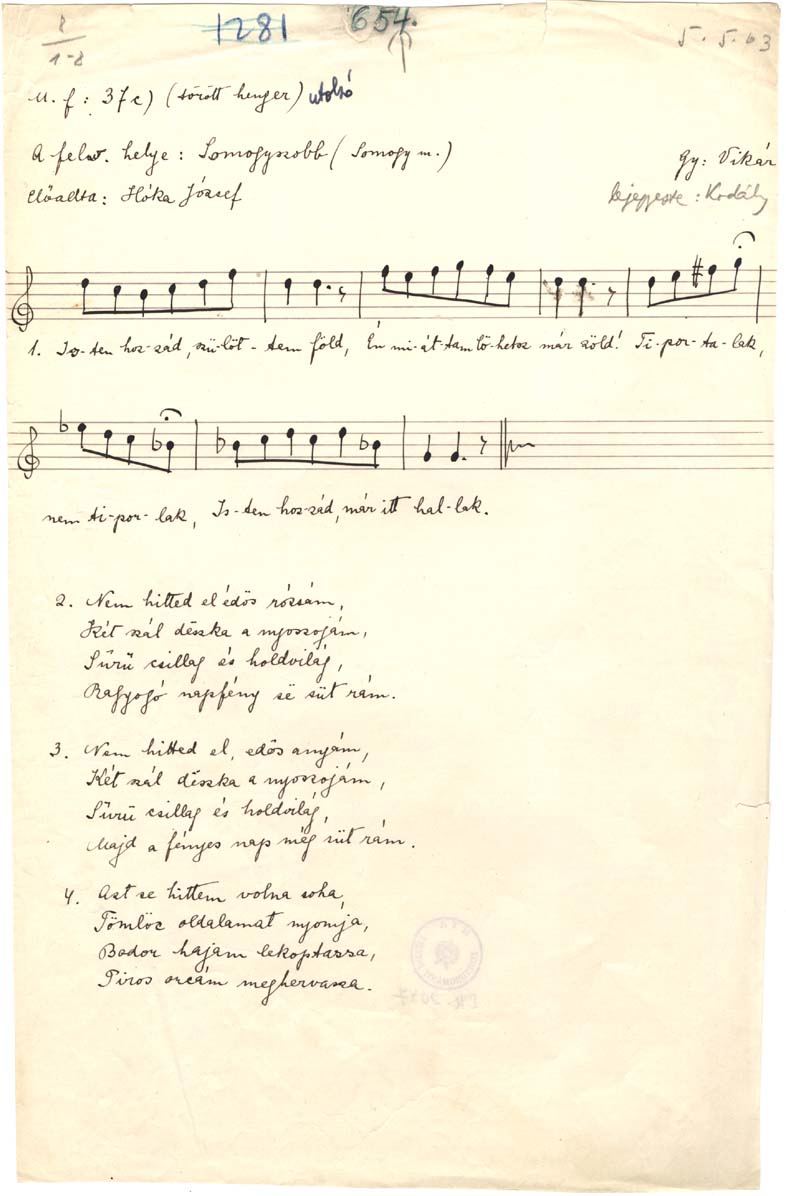 8
1-8
1281
654.
5. 5. 63
M. f: 37c) (törött henger) utolsó
A felv. helye: Somogyszobb (Somogy m.)
Gy: Vikár
Előadta: Hóka József
lejegyezte: Kodály
1. Is-ten hoz-zád, szü-löt-tem föld, Én mi-át-tam lö-hetsz már zöld! Ti-por-ta-lak,
nem ti-por-lak, Is-ten hoz-zád, már itt hal-lak.
2. Nem hitted el édös rózsám,
Két szál dëszka a nyoszojám,
Sűrü csillag és holdvilág,
Ragyogó napfény së süt rám.
3. Nem hitted el, edös anyám,
Két szál dëszka a nyoszojám,
Sűrü csillag és holdvilág,
Majd a fényes nap mëg süt rám.
4. Ast se hittem volna soha,
Tömlöc oldalamat nyomja,
Bodor hajam lekoptassa,
Piros orcám meghervassza.